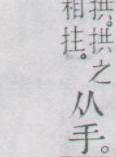 拱。拱之
相拄。
从手。